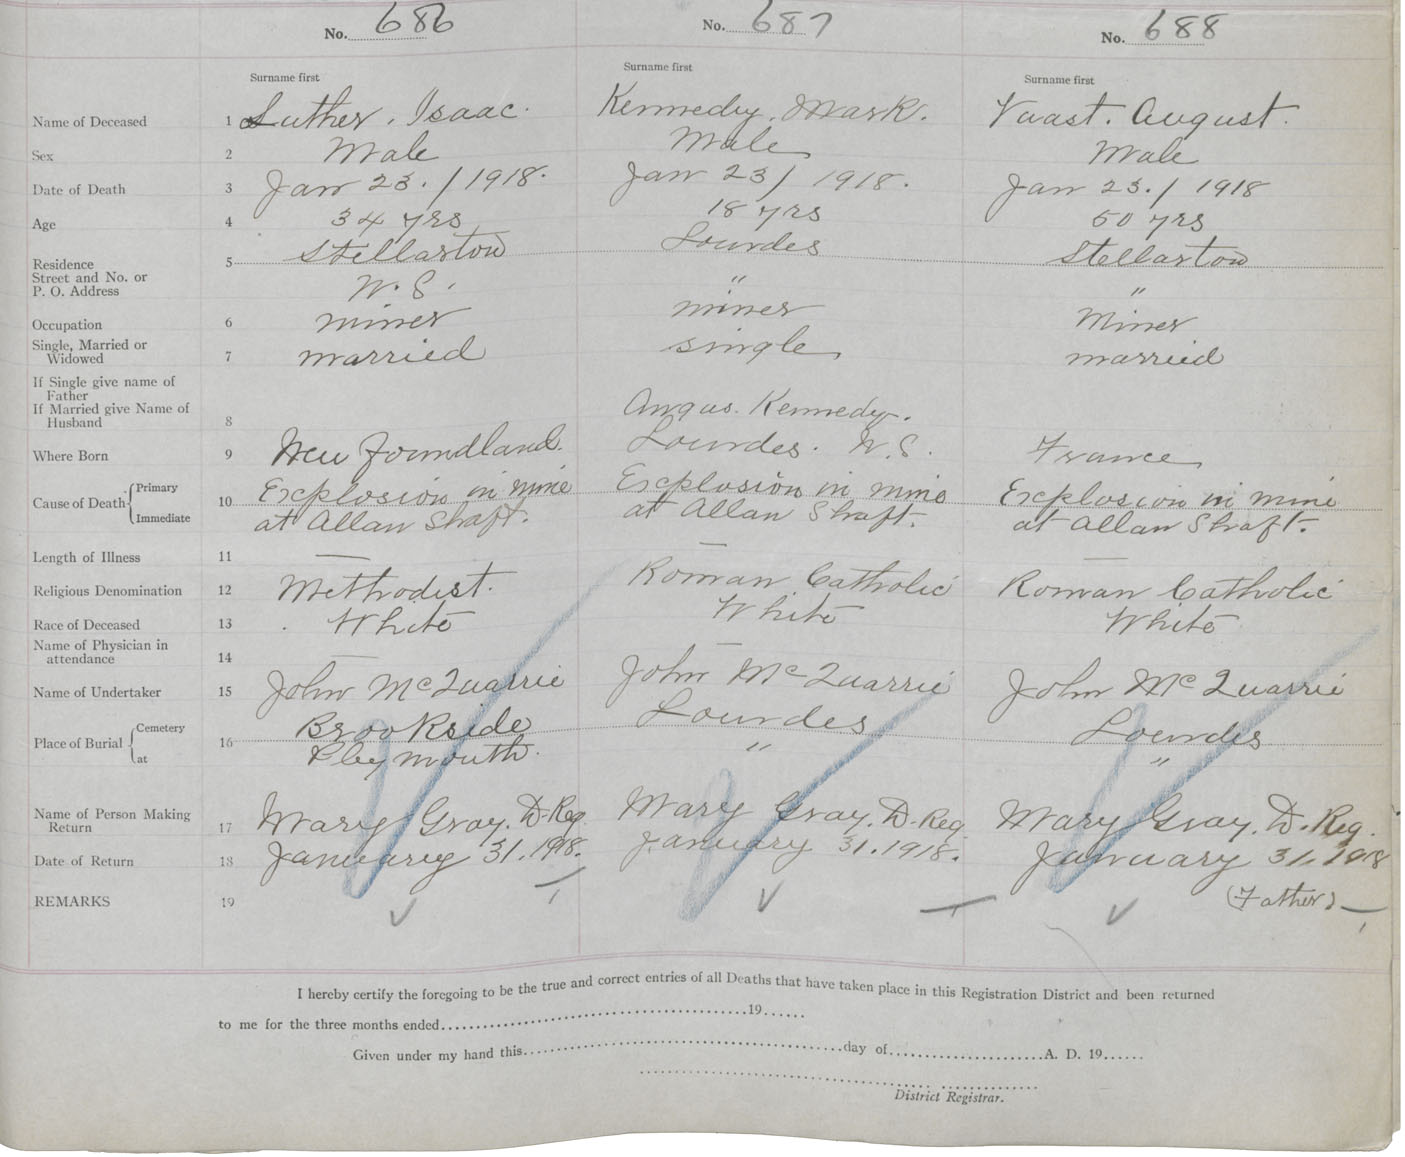 No. 686 No. 687 No. 688
Surname first Surname first Surname first
Name of Deceased 1 Luther, Isaac. Kennedy, Mark. Vaast. August.
Sex 2 Male Male Male
Date of Death 3 Jan 23./1918. Jan 23/1918. Jan 23./1918
Age 4 34 yrs 18 yrs 50 yrs
Residence 5 Stellarton Lourdes Stellarton
Street and No. or
P. O. Address N. S. " "
Occupation 6 miner miner Miner
Single, Married or
Widowed 7 married single married
If Single give name of
Father
If Married give Name of
Husband 8 Angus. Kennedy.
Where Born 9 New Foundland. Lourdes. N.S. France
Cause of Death { Primary 10 Explosion in mine Explosion in mine Explosion in mine
Immediate at Allan Shaft. at Allan Shaft. at Allan Shaft.
Length of Illness 11 — — —
Religious Denomination 12 Methodist. Roman Catholic Roman Catholic
Race of Deceased 13 White White White
Name of Physician in
attendance 14 — —
Name of Undertaker 15 John McQuarrie John McQuarrie John McQuarrie
Place of Burial { Cemetery 16 Brookside Lourdes Lourdes
at Pleymouth. " "
Name of Person Making
Return 17 Mary Gray. D-Reg. Mary Gray. D-Reg Mary Gray. D. Reg.
Date of Return 18 January 31. 1918. January 31. 1918. January 31. 1918
REMARKS 19 (Father)
I hereby certify the foregoing to be the true and correct entries of all Deaths that have taken place in this Registration District and been returned
to me for the three months ended..........19......
Given under my hand this..........day of..........A. D. 19......
District Registrar.